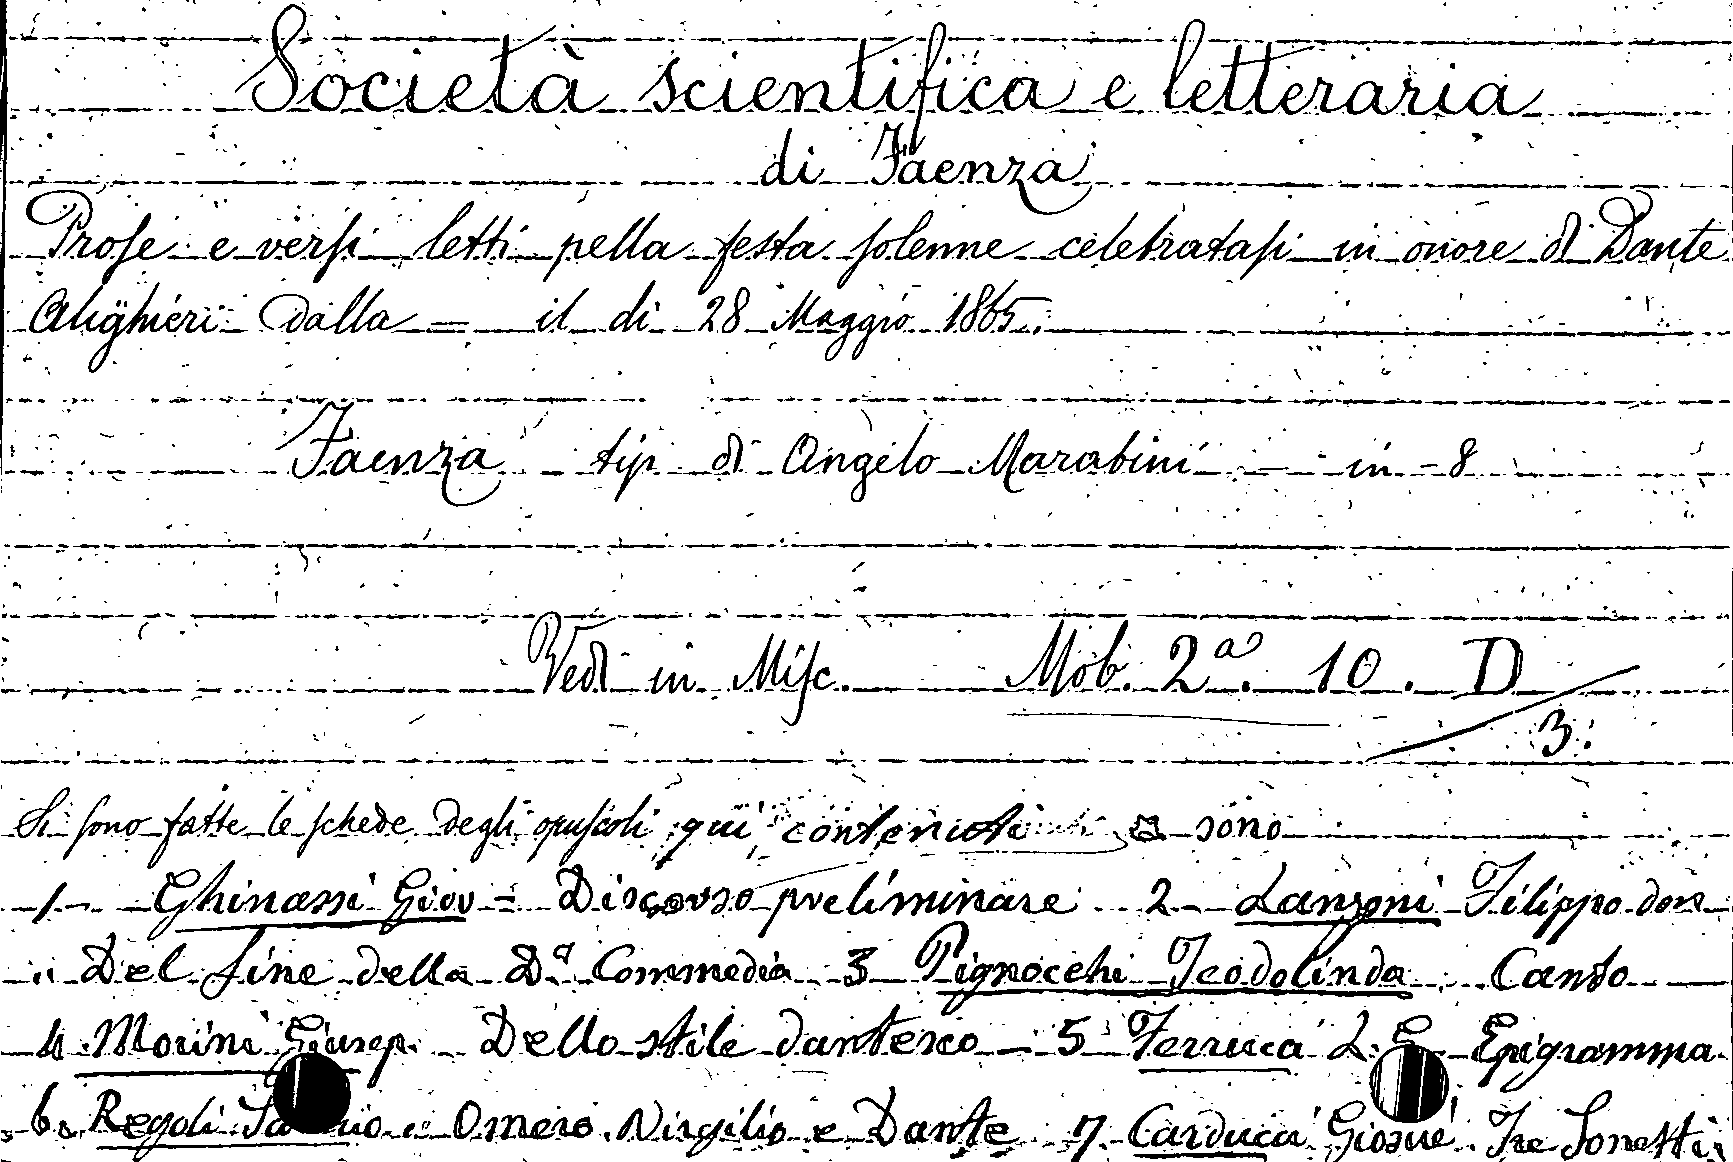 Società scientifica e letteraria
di Faenza
Prose e versi letti pella festa solenne celebratasi in onore di Dante
Alighieri dalla = il dì 28 Maggio 1865.
Faenza tip di Angelo Marabini - in-8
Vedi in Misc. Mob. 2a. 10. D
3.
Si sono fatte le schede degli opuscoli qui contenuti e sono
1- Ghinassi Giov = Discorso preliminare 2- Lanzoni Filippo don
Del fine della Da Commedia 3 Pignocchi Teodolinda Canto
4 Morini Giusep. Dello stile dantesco - 5 Ferrucci L. C. Epigramma
6. Regoli Omero Virgilio e Dante 7 Carducci Giosuè Tre Sonetti